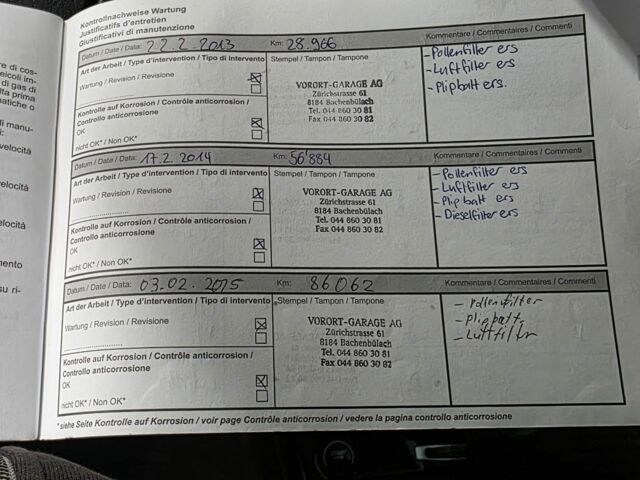 Kontrollnachweise Wartung
Justificatifs d'entretien
Giustificativi di manutenzione
Datum / Date / Data: 22.2.2013 Km: 28.966 Kommentare / Commentaires / Commenti
Art der Arbeit / Type d'intervention / Tipo di intervento
Stempel / Tampon / Tampone
Wartung / Revision / Revisione
Kontrolle auf Korrosion / Contrôle anticorrosion /
Controllo anticorrosione
OK
nicht OK* / Non OK*
VORORT-GARAGE AG
Zürichstrasse 61
8184 Bachenbülach
Tel. 044 860 30 81
Fax 044 860 30 82
- Pollenfilter ers
- Luftfilter ers
- Plipbatt ers.
Datum / Date / Data: 17.2.2014 Km: 56'884 Kommentare / Commentaires / Commenti
Art der Arbeit / Type d'intervention / Tipo di intervento
Stempel / Tampon / Tampone
Wartung / Revision / Revisione
Kontrolle auf Korrosion / Contrôle anticorrosion /
Controllo anticorrosione
OK
nicht OK* / Non OK*
VORORT-GARAGE AG
Zürichstrasse 61
8184 Bachenbülach
Tel. 044 860 30 81
Fax 044 860 30 82
- Pollenfilter ers
- Luftfilter ers
- Plip batt ers
- Dieselfilter ers
Datum / Date / Data: 03.02.2015 Km: 86062 Kommentare / Commentaires / Commenti
Art der Arbeit / Type d'intervention / Tipo di intervento
Stempel / Tampon / Tampone
Wartung / Revision / Revisione
Kontrolle auf Korrosion / Contrôle anticorrosion /
Controllo anticorrosione
OK
nicht OK* / Non OK*
VORORT-GARAGE AG
Zürichstrasse 61
8184 Bachenbülach
Tel. 044 860 30 81
Fax 044 860 30 82
- Pollenfilter
- Plipbatt.
- Luftfilter
*siehe Seite Kontrolle auf Korrosion / voir page Contrôle anticorrosion / vedere la pagina controllo anticorrosione